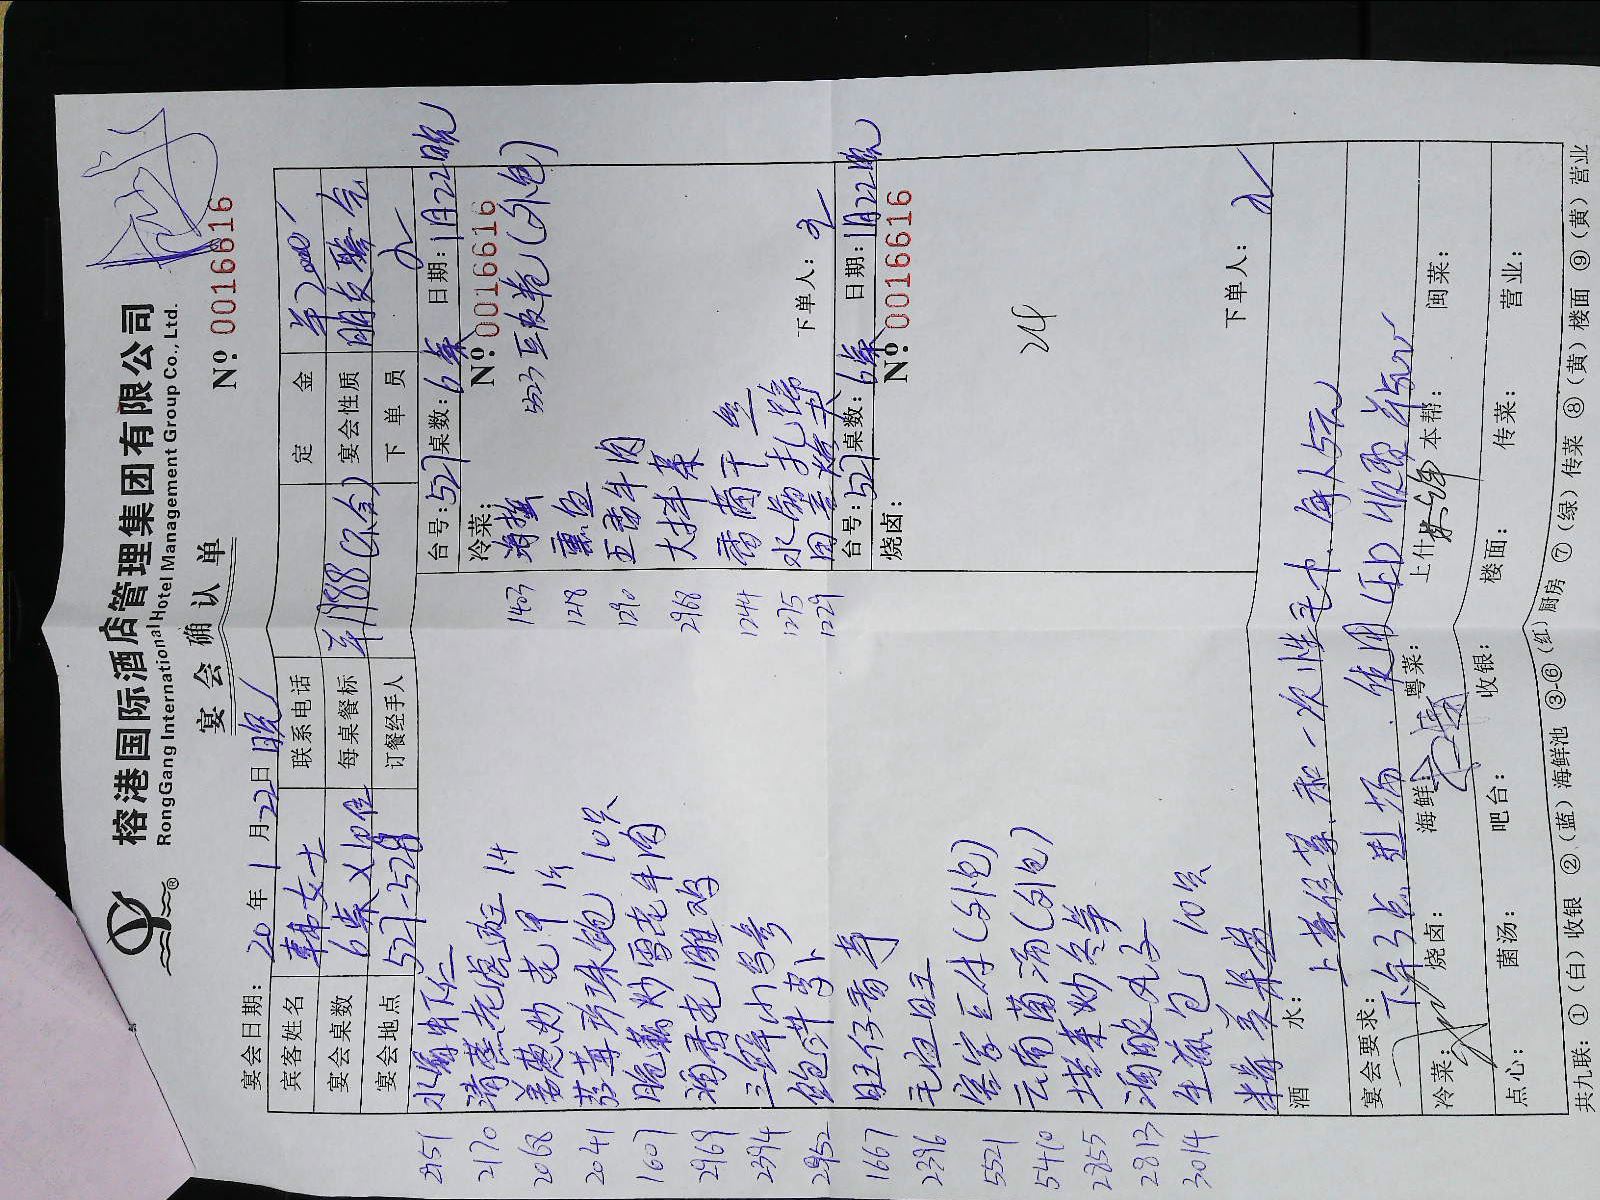 榕港国际酒店管理集团有限公司
RongGang International Hotel Management Group Co., Ltd.
®
宴会确认单
Nº 0016616
宴会日期: 20 年 1 月 22 日 晚
宾客姓名 韩女士 联系电话 定金 2000
宴会桌数 6桌×10位 每桌餐标 1988(不含) 宴会性质 朋友聚会
宴会地点 527-528 订餐经手人 下单员
2151 水晶虾仁
2170 清蒸老虎斑 1斤
2068 姜葱炒花甲
2041 蒜茸珍珠鲍 10只
1607 脆藕炒雪花牛肉
2969 酒香毛脚鸡
2394 三鲜小乌参
2952 鲍汁萝卜
1667 旺仔香芋
2396 毛血旺
5521 客家豆付(外包)
5410 云南菌汤(外包)
2855 塔菜炒冬笋
2813 酒酿丸子
3014 生煎包 10只
精美果盘
台号: 527 桌数: 6桌 日期: 1月22晚
冷菜: Nº 0016616
1403 海蜇
1218 熏鱼
1290 五香牛肉
2968 大拌菜
1244 香菌干丝
1275 水晶扎蹄
1229
5523 豆皮卷(外包)
下单人:
台号: 527 桌数: 6桌 日期: 1月22晚
烧卤: Nº 0016616
24
下单人:
酒水: 上一次性毛巾.每人5元
宴会要求: 下午3点进场.使用LED
冷菜: 烧卤: 海鲜: 粤菜: 上什: 本帮: 闽菜:
点心: 菌汤: 吧台: 收银: 楼面: 传菜: 营业:
共九联: ①(白)收银 ②(蓝)海鲜池 ③-⑥(红)厨房 ⑦(绿)传菜 ⑧(黄)楼面 ⑨(黄)营业